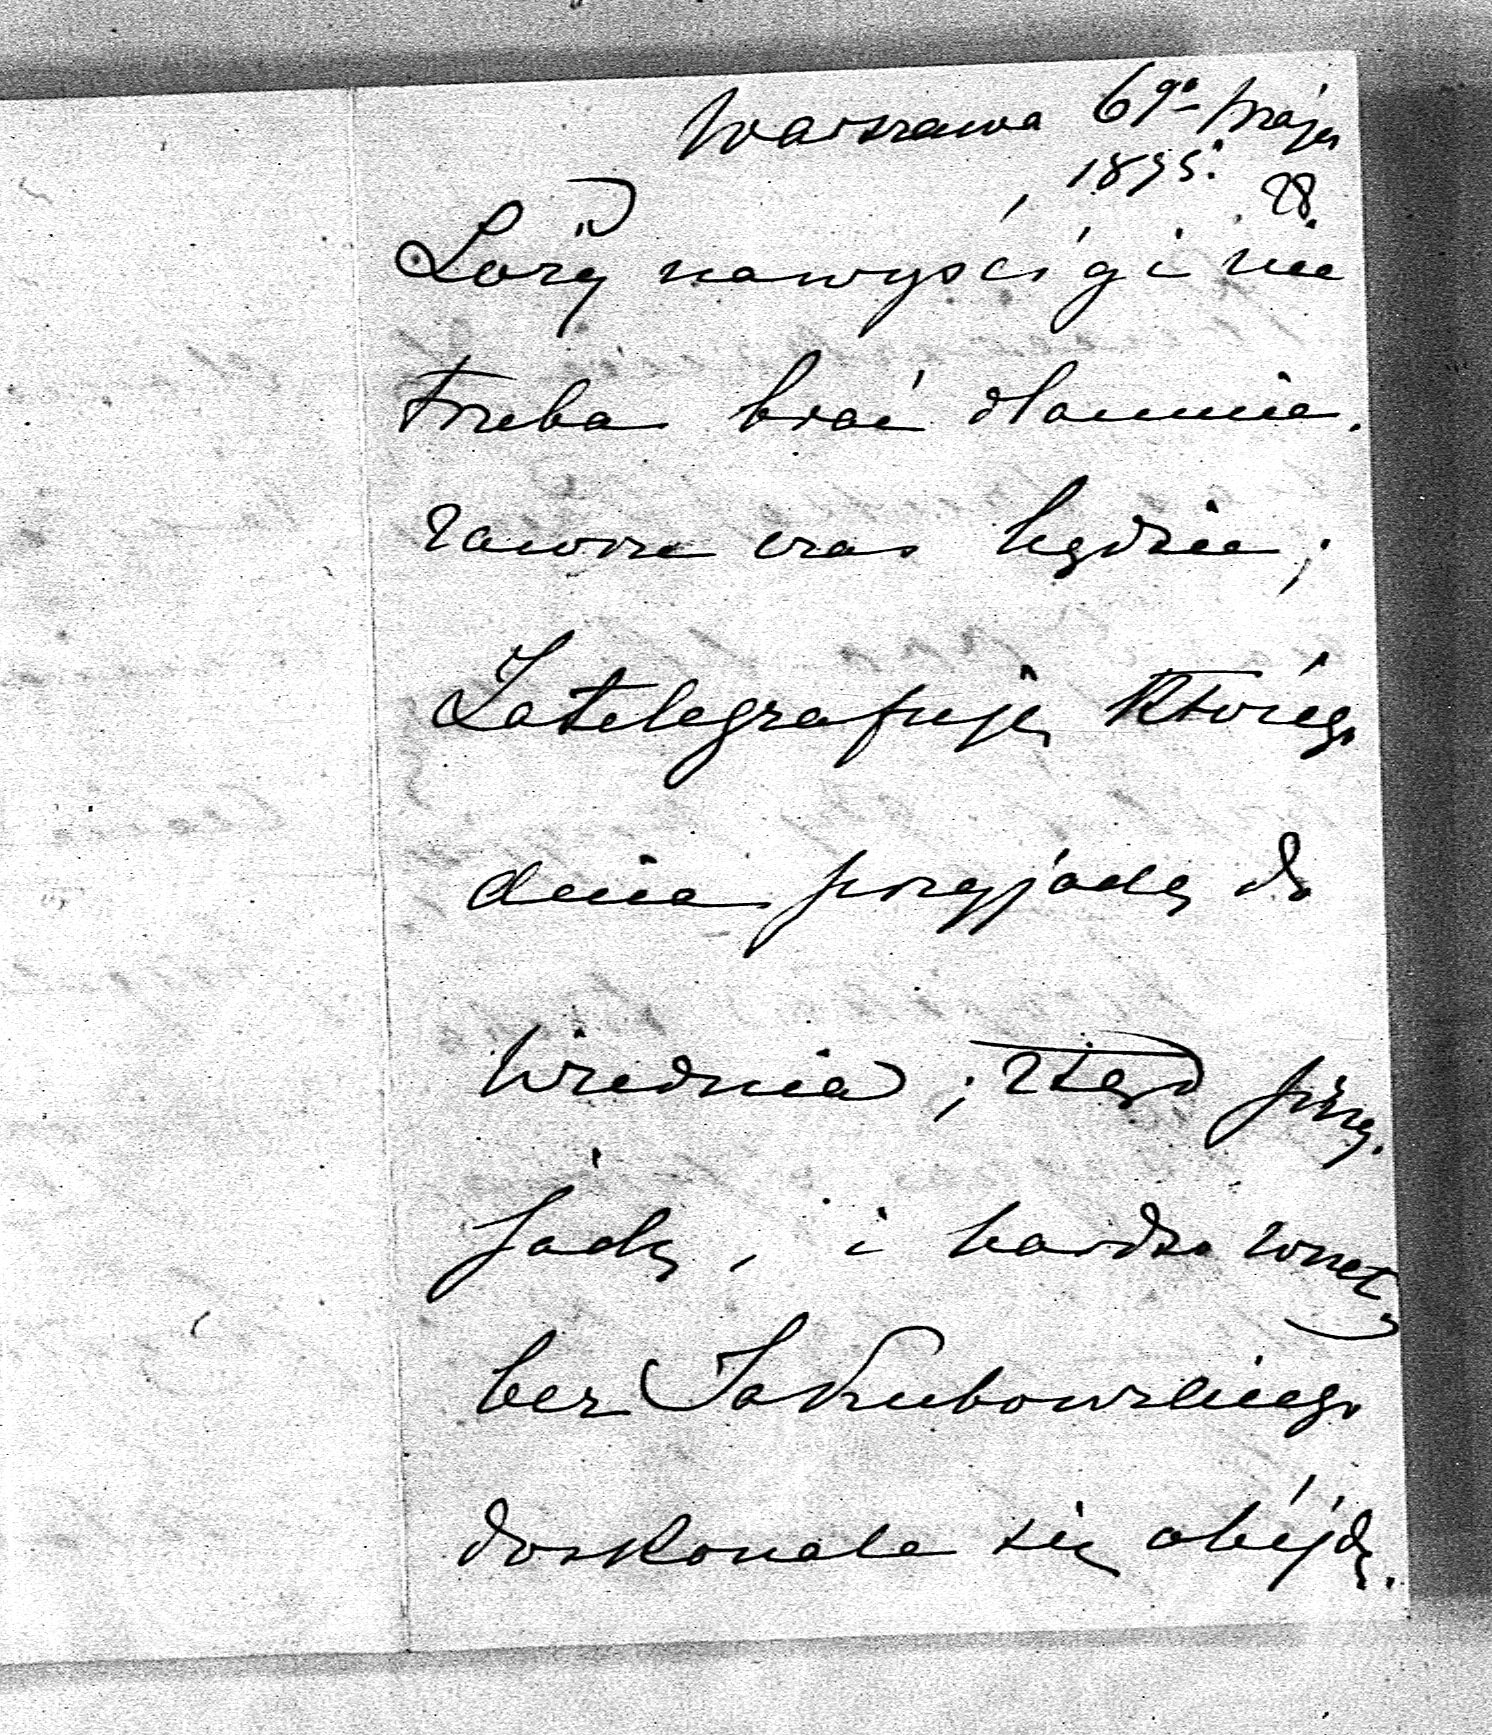 Warszawa 6go maja
1895.
28.
Loży na wyścigi nie
trzeba brać dla mnie.
zawsze czas będzie;
Zatelegrafuję którego
dnia przyjadę do
Wiednia; ztąd przy-
jadę, i bardzo wnet,
bez Jakubowskiego
doskonale się obéjdę.